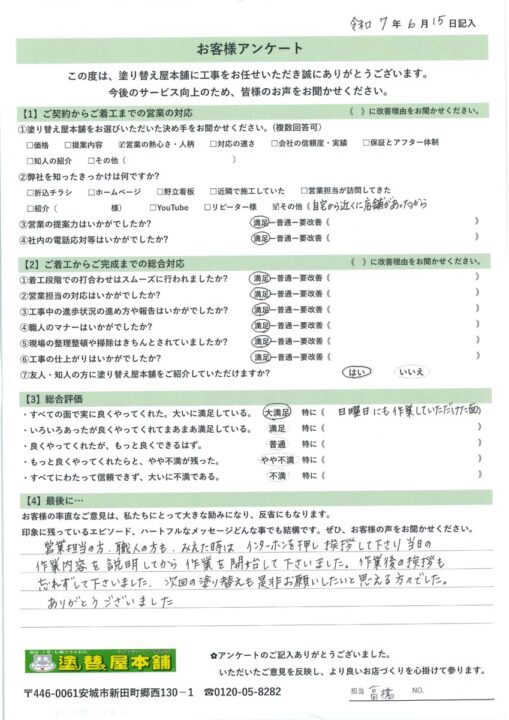 令和 7 年 6 月 15 日記入
お客様アンケート
この度は、塗り替え屋本舗に工事をお任せいただき誠にありがとうございます。
今後のサービス向上のため、皆様のお声をお聞かせください。
【1】ご契約からご着工までの営業の対応 《 》に改善理由をお聞かせください。
①塗り替え屋本舗をお選びいただいた決め手をお聞かせください。(複数回答可)
□価格 □提案内容 ☑営業の熱心さ・人柄 □対応の速さ □会社の信頼度・実績 □保証とアフター体制
□知人の紹介 □その他( )
②弊社を知ったきっかけは何ですか?
□折込チラシ □ホームページ □野立看板 □近隣で施工していた □営業担当が訪問してきた
□紹介( 様) □YouTube □リピーター様 ☑その他(自宅から近くに店舗があったから
③営業の提案力はいかがでしたか? 満足ー普通ー要改善《 》
④社内の電話応対等はいかがでしたか? 満足ー普通ー要改善《 》
【2】ご着工からご完成までの総合対応 《 》に改善理由をお聞かせください。
①着工段階での打合わせはスムーズに行われましたか? 満足ー普通ー要改善《 》
②営業担当の対応はいかがでしたか? 満足ー普通ー要改善《 》
③工事中の進歩状況の進め方や報告はいかがでしたか? 満足ー普通ー要改善《 》
④職人のマナーはいかがでしたか? 満足ー普通ー要改善《 》
⑤現場の整理整頓や掃除はきちんとされていましたか? 満足ー普通ー要改善《 》
⑥工事の仕上がりはいかがでしたか? 満足ー普通ー要改善《 》
⑦友人・知人の方に塗り替え屋本舗をご紹介していただけますか? はい いいえ
【3】総合評価
・すべての面で実に良くやってくれた。大いに満足している。 大満足 特に《 日曜日にも作業していただけた面》
・いろいろあったが良くやってくれてまあまあ満足している。 満足 特に《 》
・良くやってくれたが、もっと良くできるはず。 普通 特に《 》
・もっと良くやってくれたらと、やや不満が残った。 やや不満 特に《 》
・すべてにわたって信頼できず、大いに不満である。 不満 特に《 》
【4】最後に…
お客様の率直なご意見は、私たちにとって大きな励みになり、反省にもなります。
印象に残っているエピソード、ハートフルなメッセージどんな事でも結構です。ぜひ、お客様の声をお聞かせください。
営業担当の方、職人の方も、みえた時は インターホンを押し挨拶して下さり当日の
作業内容を説明してから作業を開始して下さいました。作業後の挨拶も
忘れずして下さいました。次回の塗り替えも是非お願いしたいと思える方々でした。
ありがとうございました
塗り替え屋本舗
✿アンケートのご記入ありがとうございました。
いただいたご意見を反映し、より良いお店づくりを心掛けて参ります。
〒446-0061安城市新田町郷西130-1 ☎0120-05-8282
担当 高橋 NO.